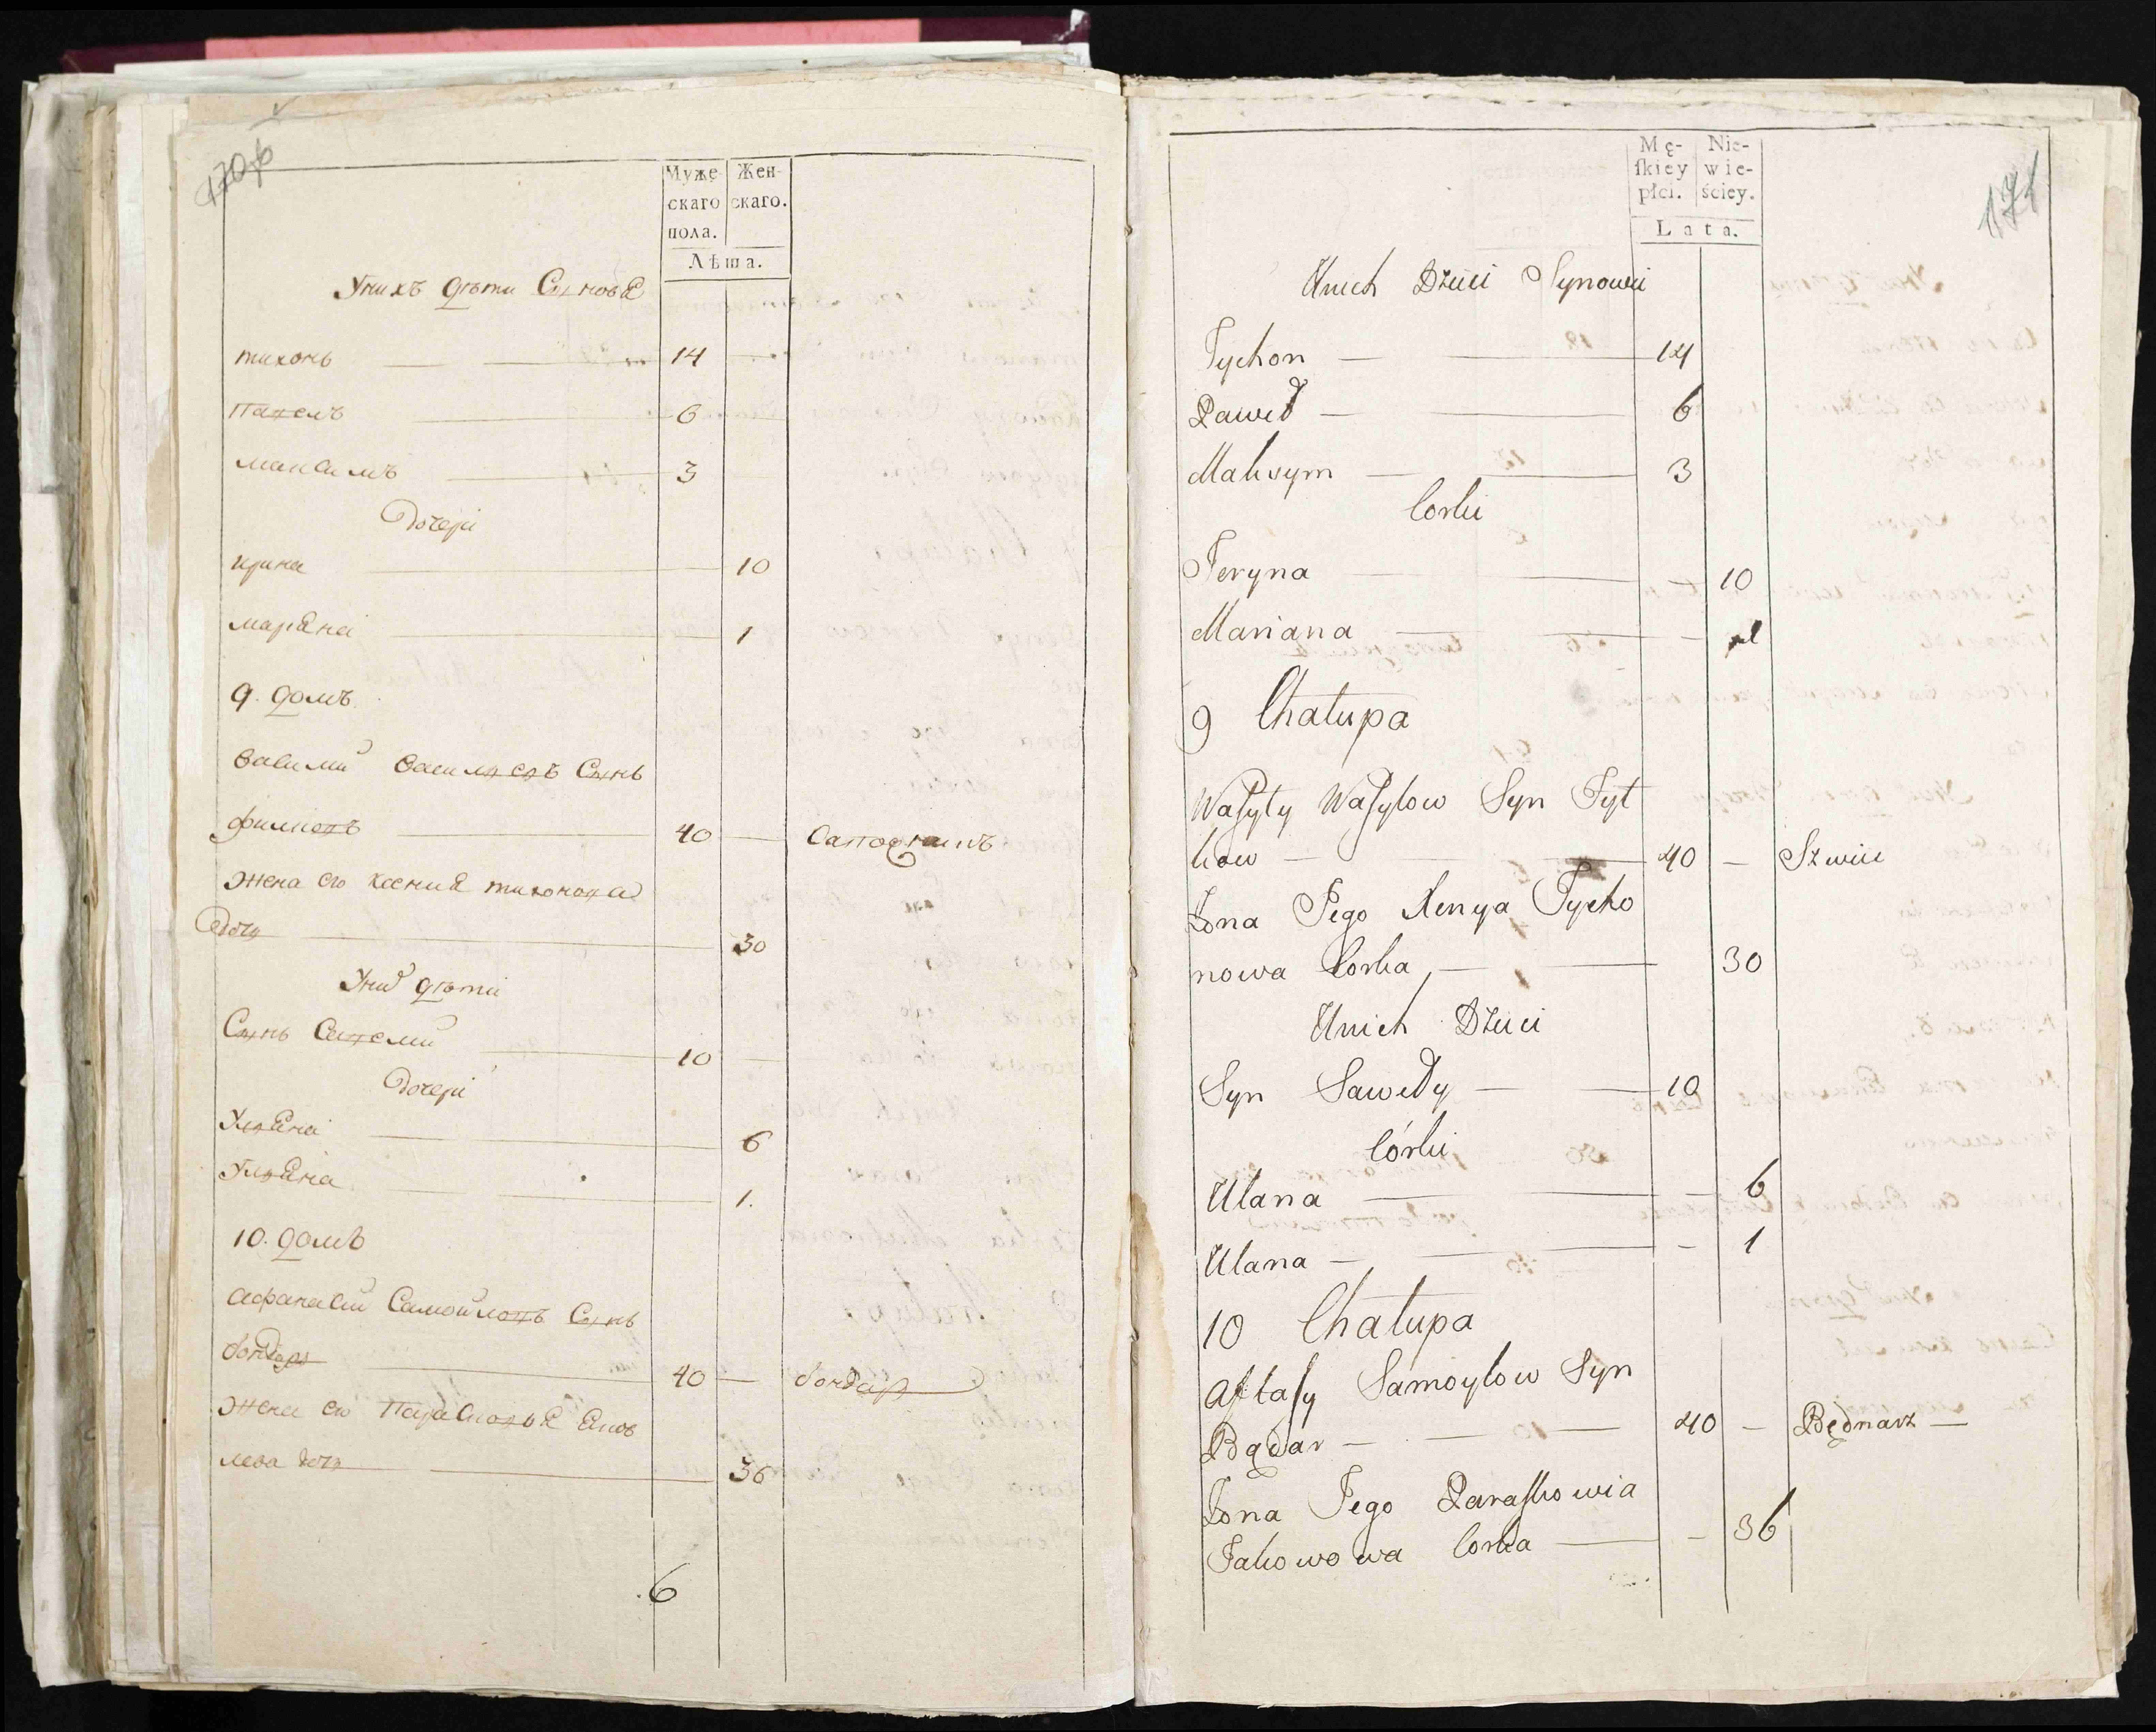 170б
Муже-
скаго
пола.
Жен-
скаго.
Лѣта.
Унихъ дѣти Синовя
тихонъ 14
Павелъ 6
максимъ 3
Дочери
ирина 10
маряна 1
9. домъ
васили василевъ Синъ
40 Сапожникъ
жена его ксения тихонова
дочь 30
Унихъ дѣти
Синъ Савели 10
Дочери
Уляна 6
Уляна 1.
10. домъ
афанаси Самойловъ Синъ
бондарь 40 — бондарь
жена его Парасковя Яков
лева дочь 36
6
171
Mę-
ſkiey
płci.
Nie-
wie-
ściey.
Lata.
Unich Dzieci Synowie
Tychon 14
Paweł 6
Maksym 3
Corki
Jeryna 10
Mariana 1
9 Chałupa
Waſyly Waſylow Syn Fyl
kow 40 — Szwiec
Żona Jego Xenya Tycho
nowa Corka 30
Unich Dzieci
Syn Sawely 10
Córki
Ulana 6
Ulana 1
10 Chałupa
Aftaſy Samoylow Syn
Bądar 40 — Będnarz —
Żona Jego Paraſkowia
Jakowowa Corka 36